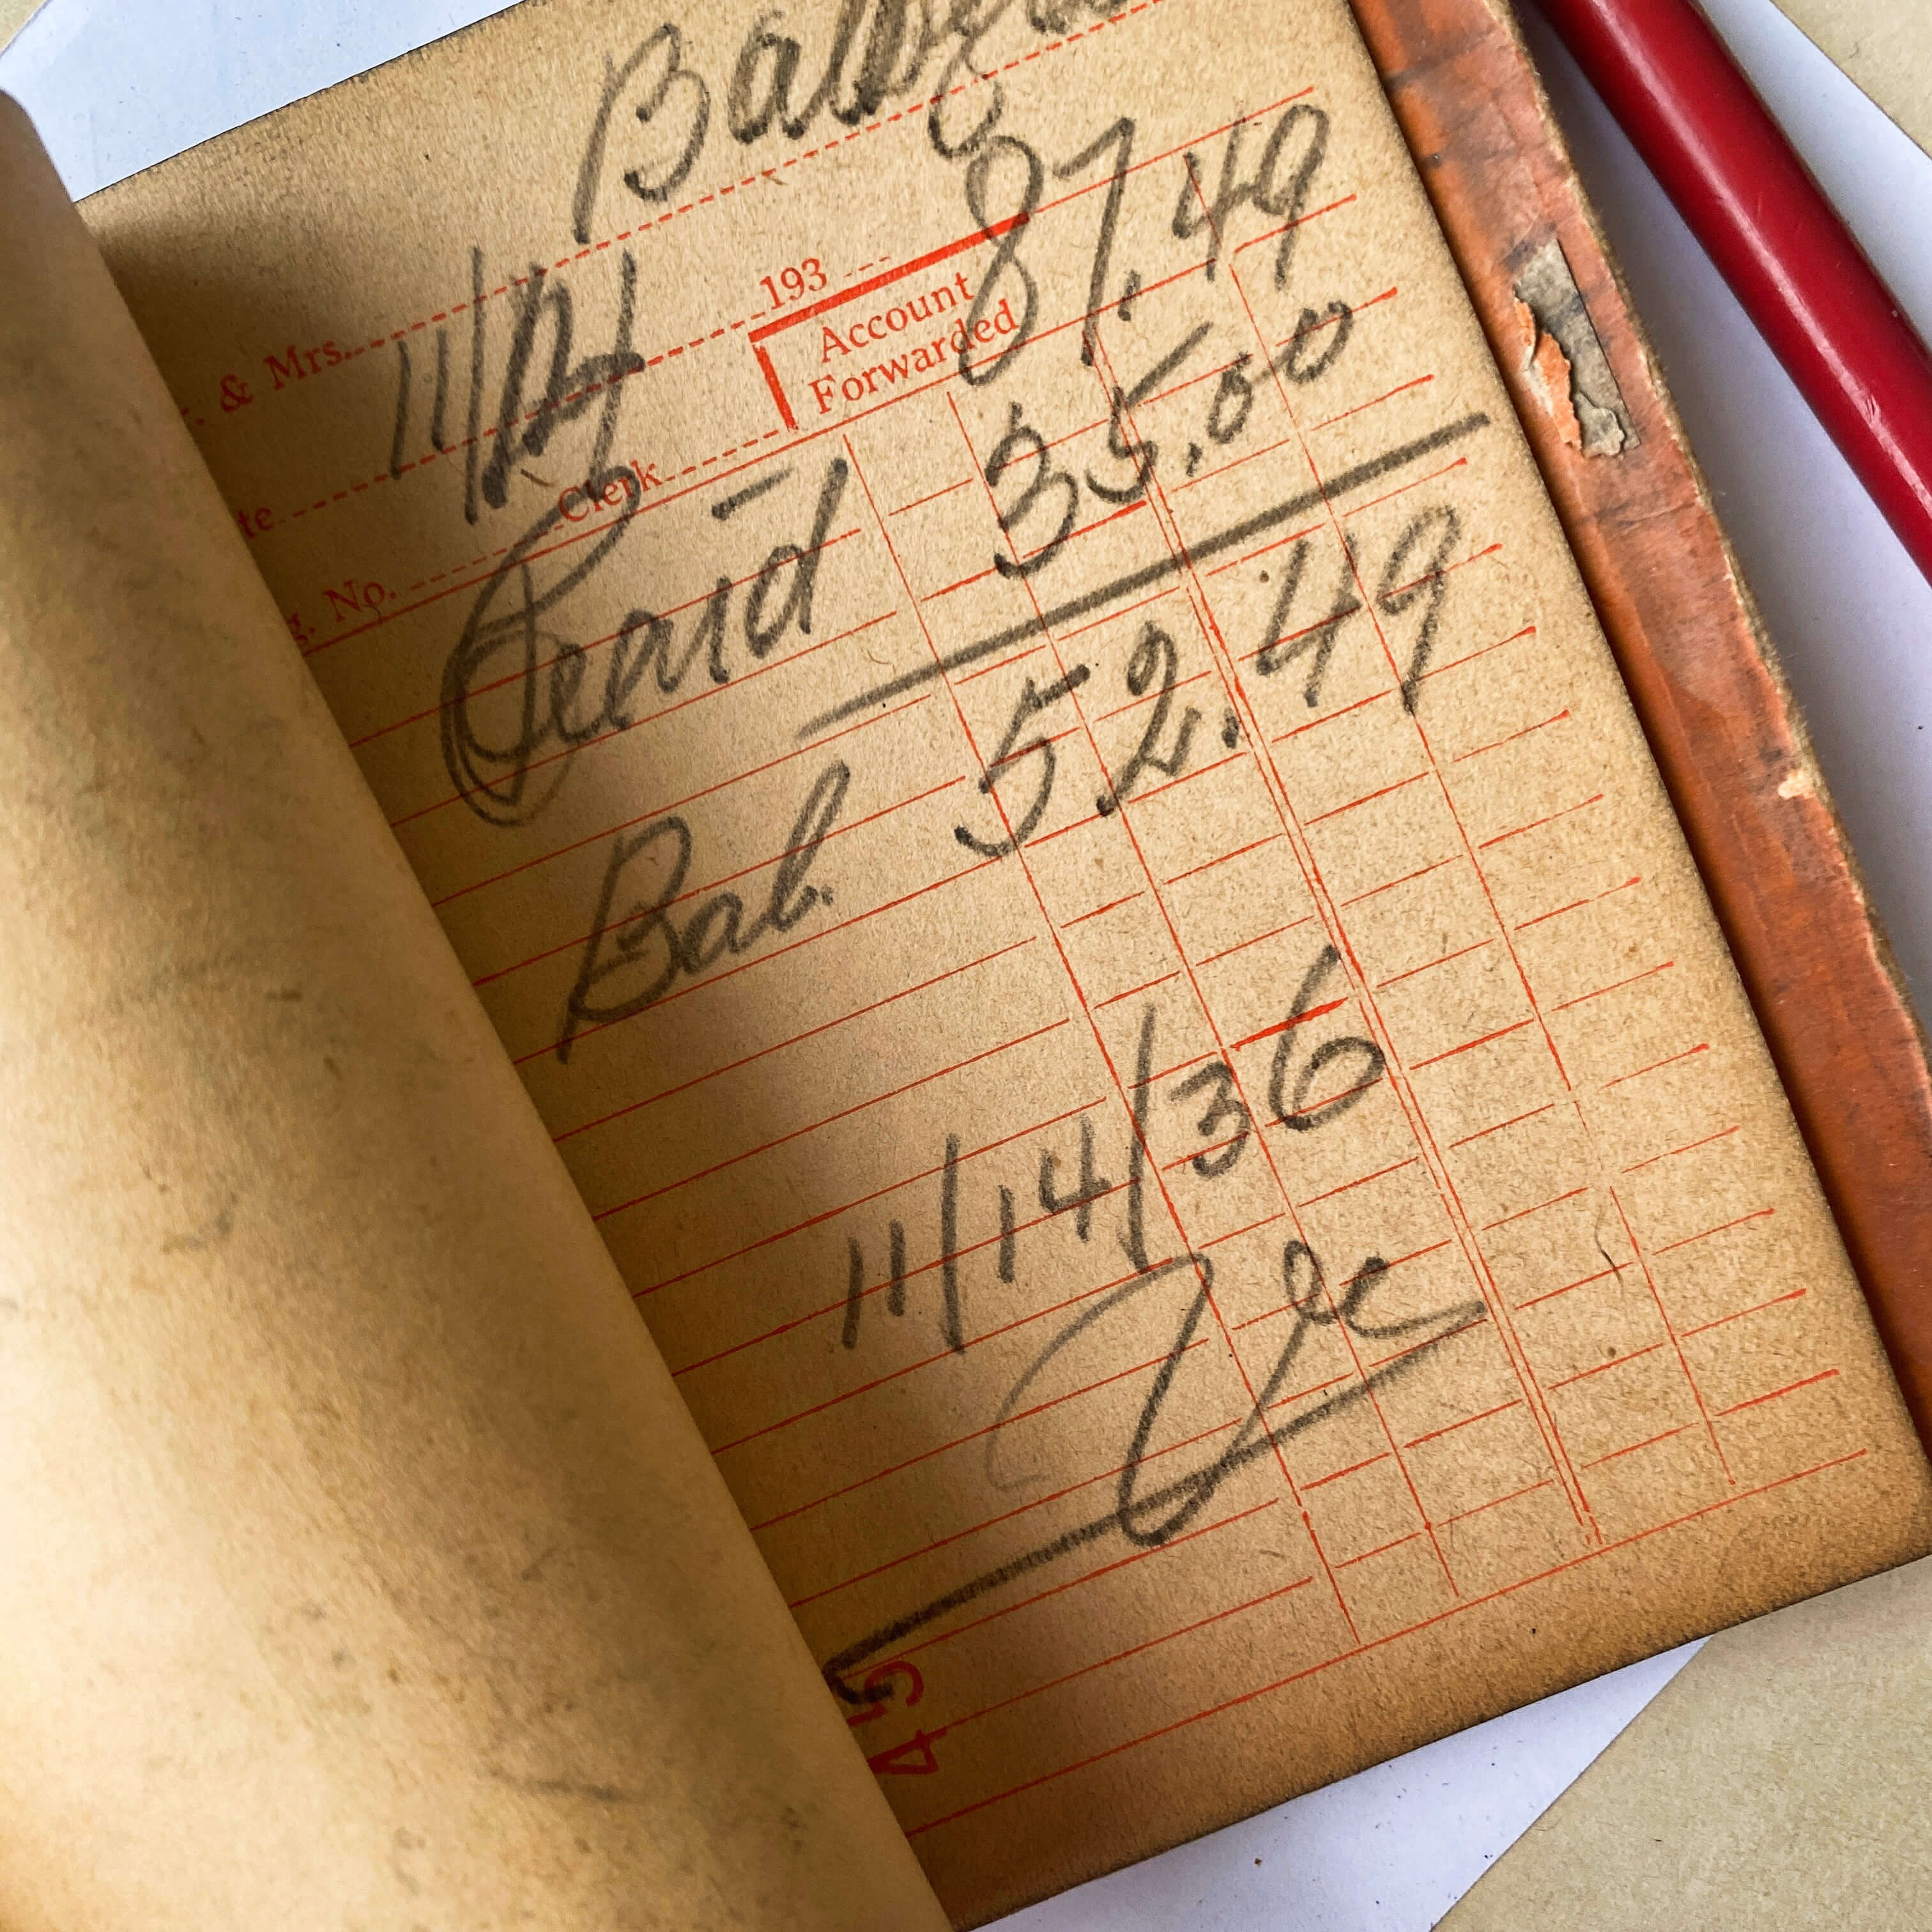 . & Mrs.
te 11/14 193
Account
Forwarded 87.49
g. No. Clerk
Paid 35.00
Bal. 52.49
11/14/36
45